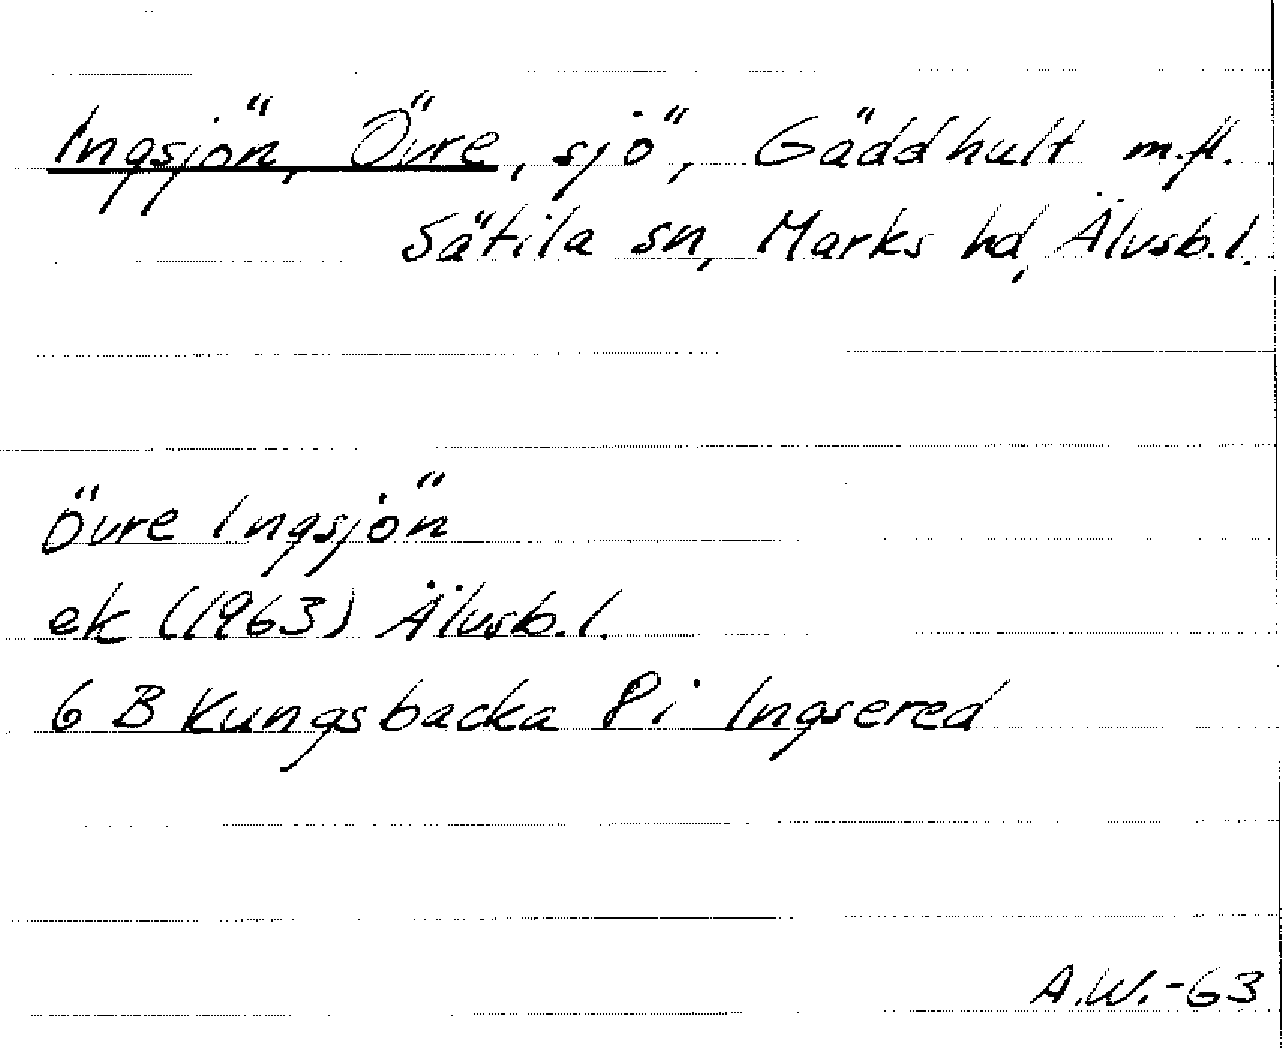 Ingsjön, Övre, sjö, Gäddhult m.fl.
Sätila sn, Marks hd, Älvsb.l.
Övre Ingsjön
ek (1963) Älvsb.l.
6 B Kungsbacka 8 i Ingsered
A.W.-63